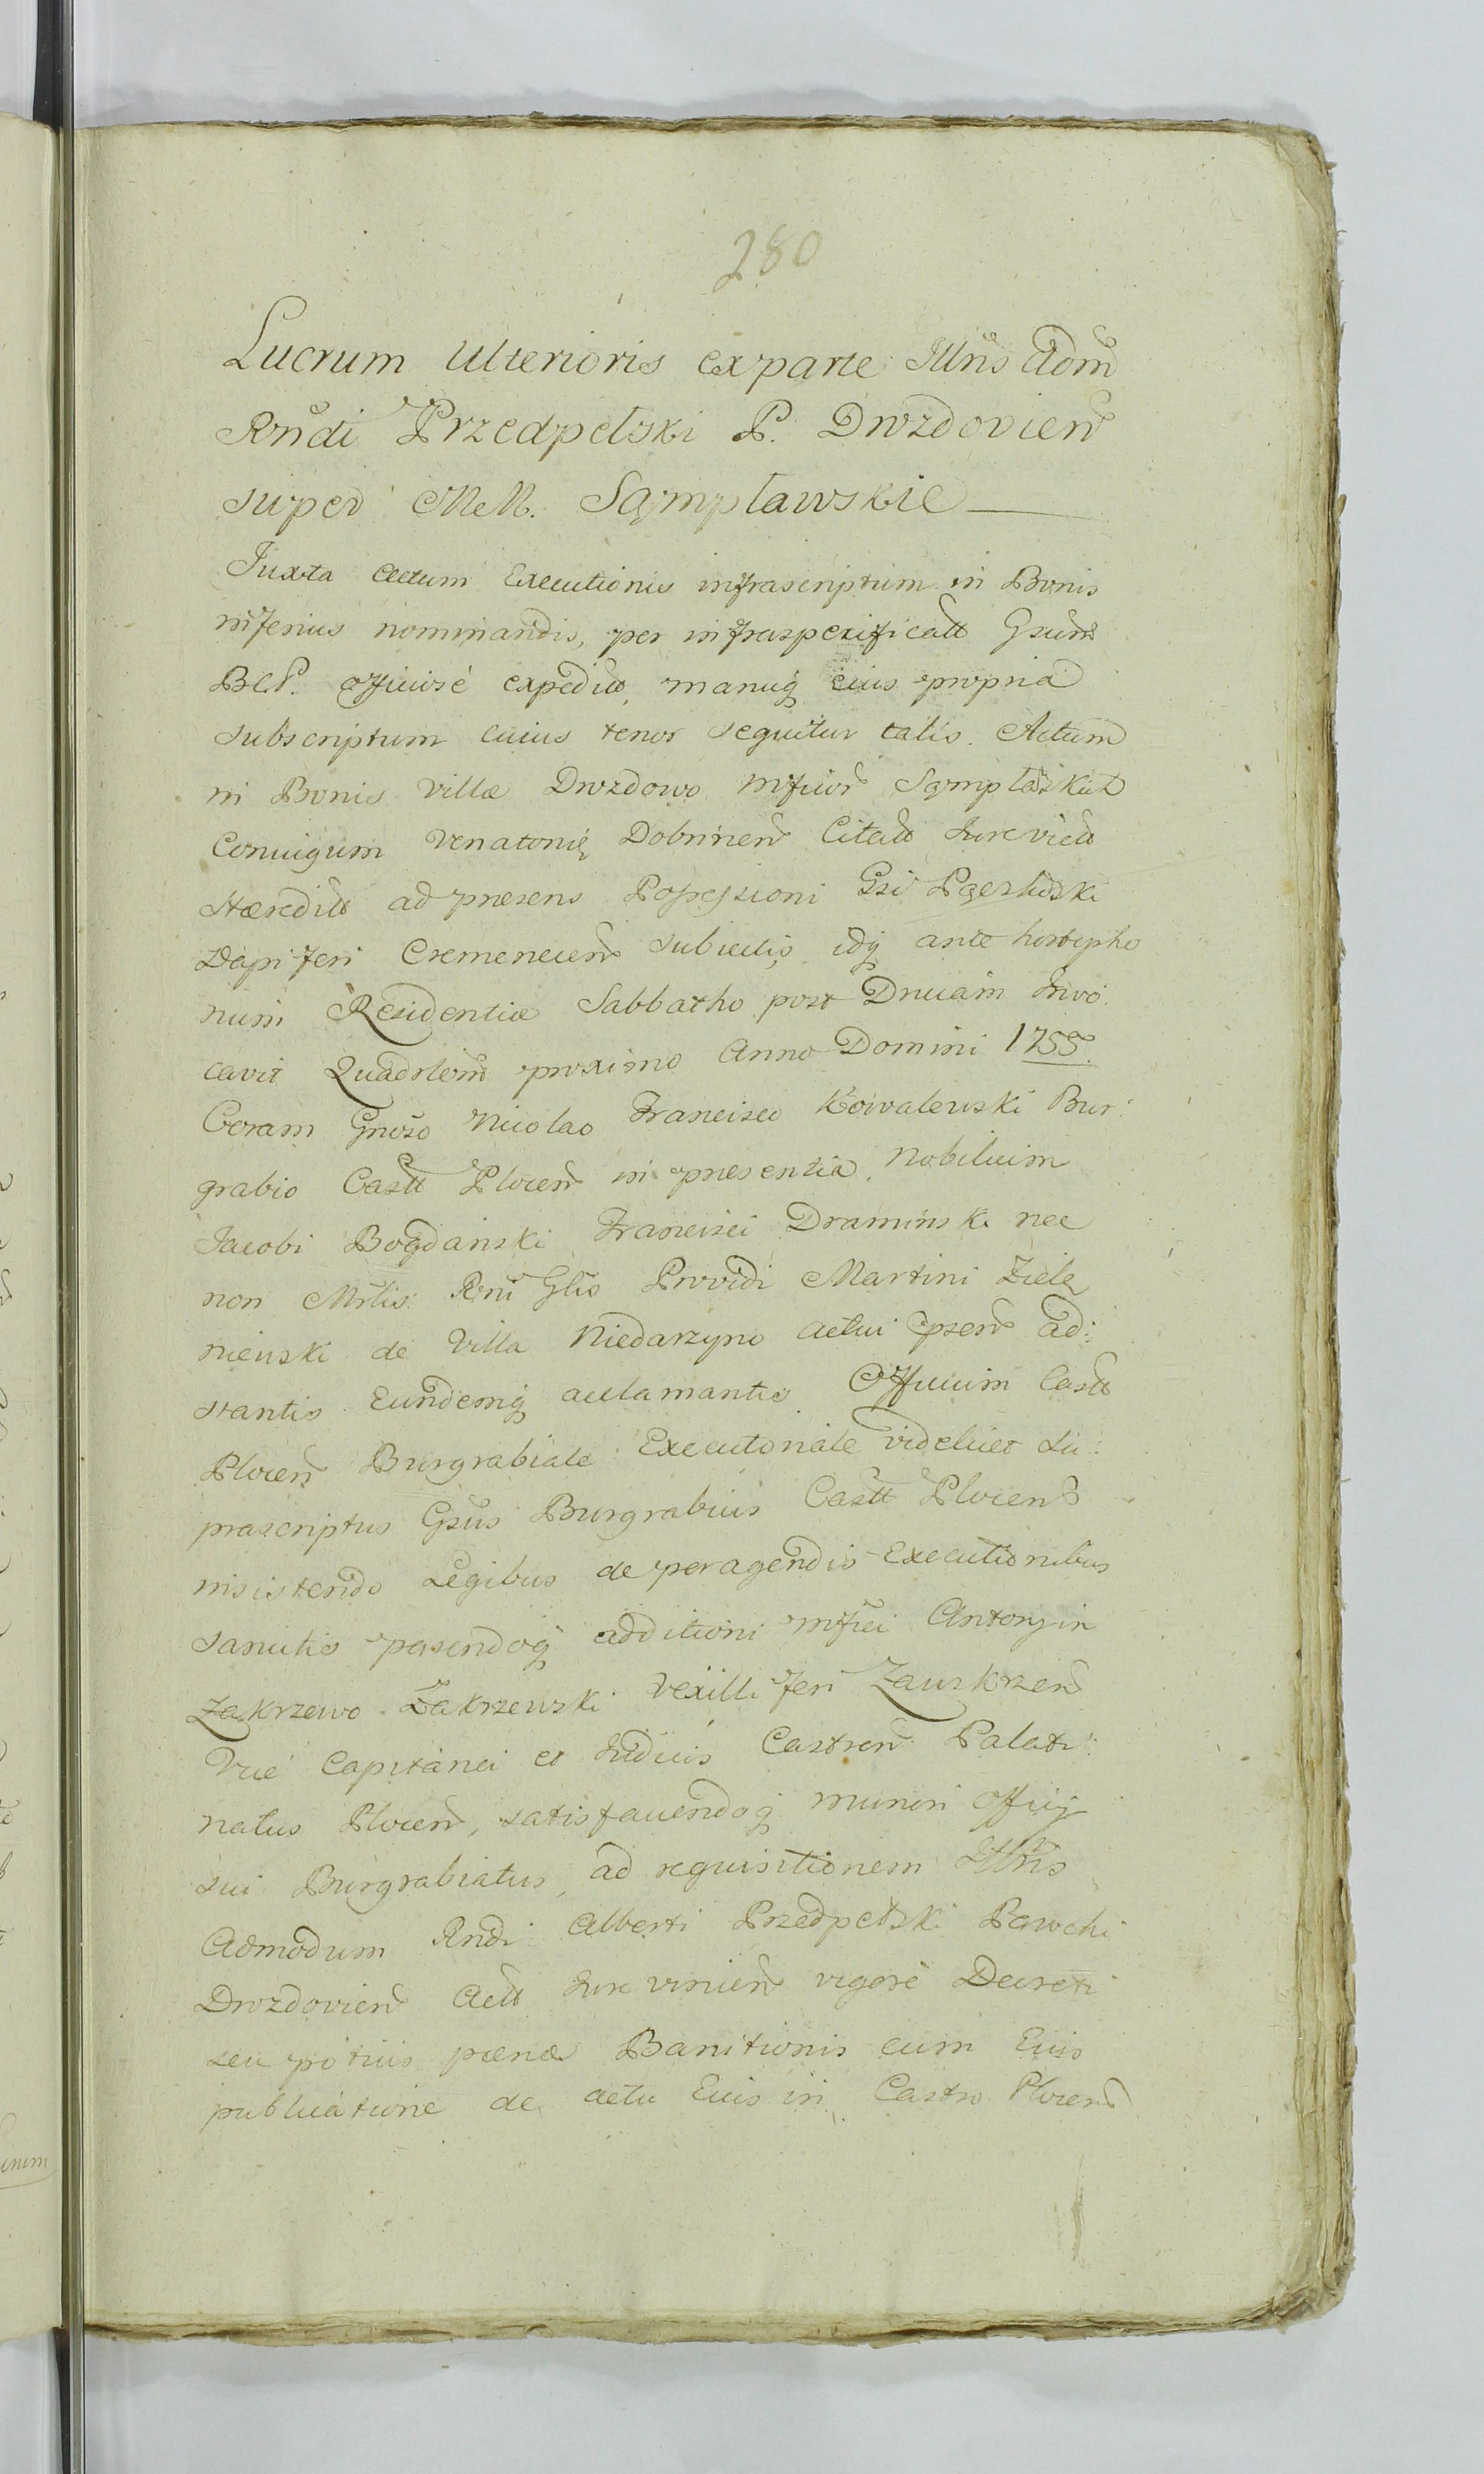 280
Lucrum Ulterioris ex parte Illris Adm
Rndi Przedpełski P. Drozdovien
super MM. Sąmpławskie
Juxta Actum Executionis infrascriptum in Bonis
inferius nominandis, per infraspecificatt Gsum
BCP. officiose expedito, manuq eius propria
subscriptum cuius tenor sequitur talis. Actum
in Bonis Villa Drozdowo Mficor
Coniugum Venatorię Dobrinen Citatt Jurevictt
Hæreditt ad præsens Possessioni Gsi
Dapiferi Cremenecen subiectis idq ante hostipho
num Residentiæ Sabbatho post Dnicam Invo
cavit Quadrlem proximo Anno Domini 1755.
Coram Gnoso Nicolao Francisco Kowalewski Bur:
grabio Castt Plocen in præsentia Nobilium
Jacobi Bogdański Francisci Dramiński nec
non Mrlis Rni Glis Providi Martini Zielę
niewski de Villa Niedarzyno actui psen ad:
stantis Eundemq acclamantis Officium Castt
Plocen Burgrabiale Executoriale videlicet Su:
prascriptus Gsus Burgrabius Castt Plocens
insistendo Legibus de peragendis Executionibus
sancitis parendoq additioni Mfici Antony in
Zakrzewo Zakrzewski Vexilliferi Zawskrzen
Vice Capitanei et Judicis Castren Palati:
natus Plocen, satisfaciendoq muneri officij
sui Burgrabiatus, ad requisitionem Illris
Admodum Rndi Alberti Przedpełski Parochi
Drozdovien Actt Jure vincen vigore Decreti
seu potius pænæ Banitionis cum Eius
publicatione de actu Eius in Castro Plocen